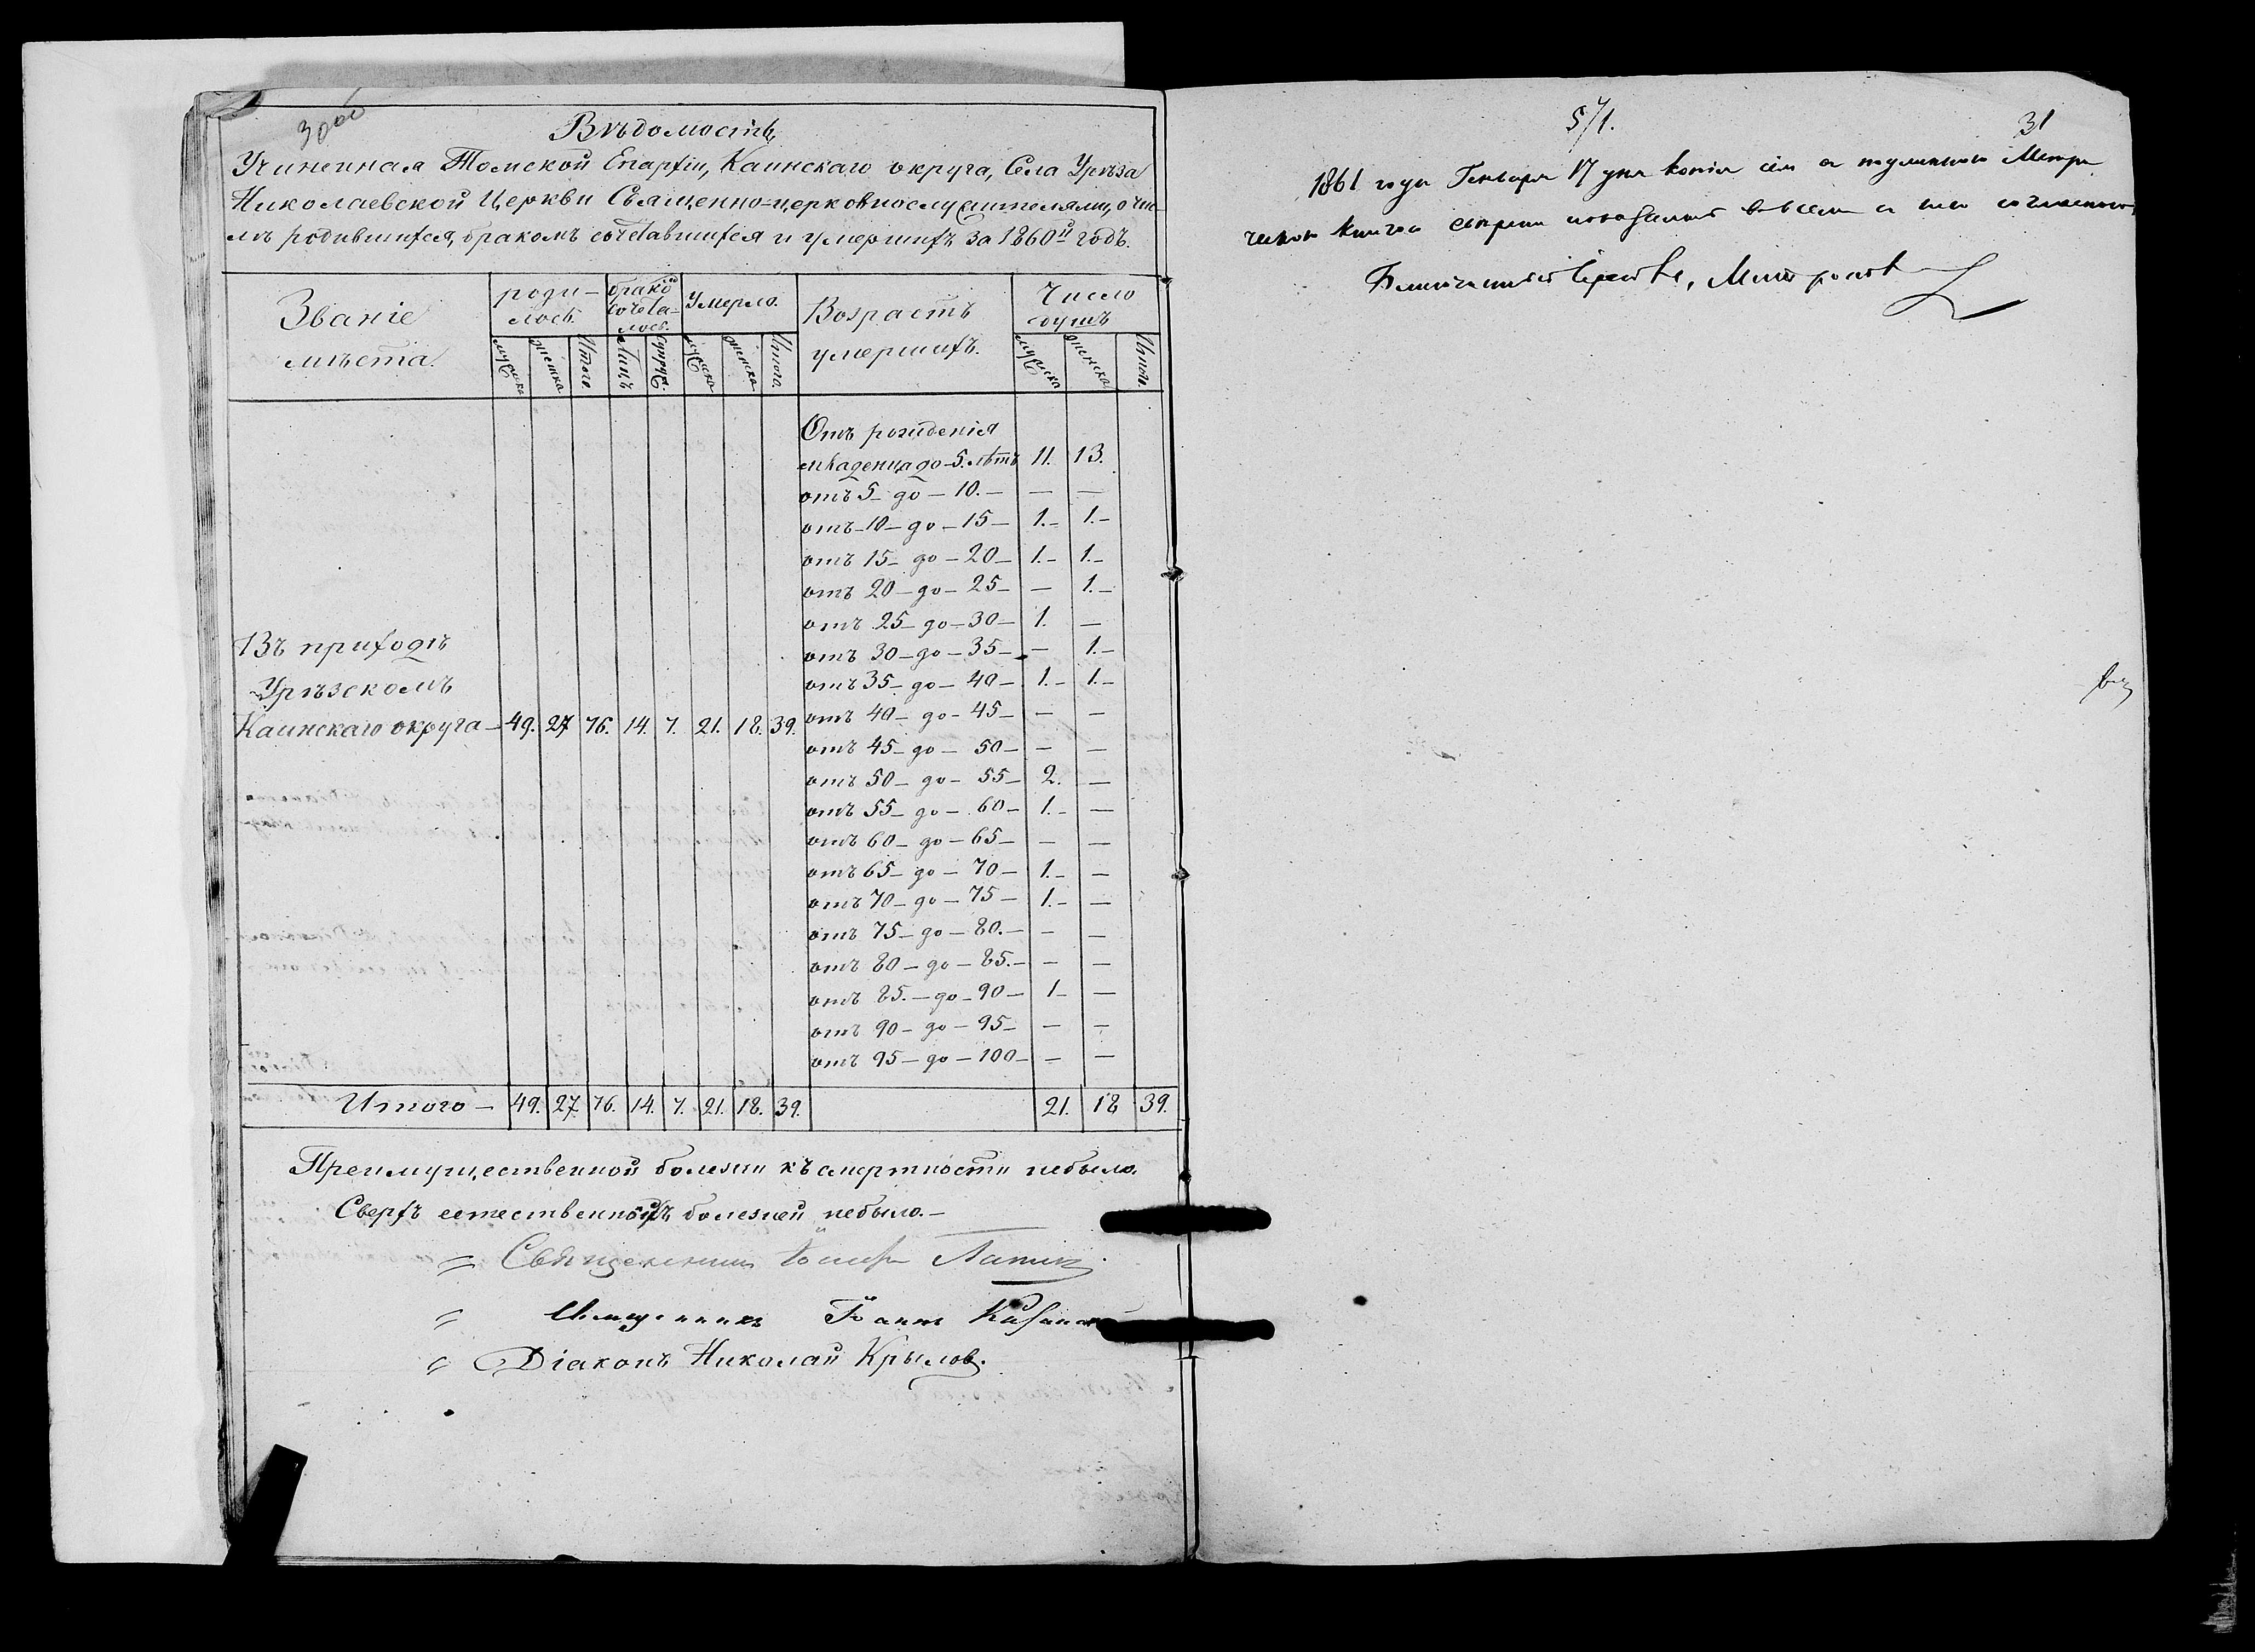 30об
Вѣдомость,
Учиненная Томской Епархіи, Каинскаго округа, Села Урѣза
Николаевской Церкви Священно=церковнослужителями, о чис-
лѣ родившихся, бракомъ сочетавшихся и умершихъ за 1860й годъ.
Званіе мѣста.
роди-лось.
бракомъ сочета-лось.
Умерло.
Возрастъ умершихъ.
Число душъ
мужска женска Итого. Лицъ супруж. мужска женска Итого. мужска женска Итого.
Отъ рожденія
младенца до 5. лѣтъ 11. 13.
отъ 5 - до - 10. - — —
отъ - 10 - до - 15 - 1. - 1. -
отъ 15 - до - 20 - 1. - 1. -
отъ 20 - до - 25 - — 1. -
отъ 25 - до - 30 - 1. —
отъ 30 - до - 35 - — 1. -
отъ 35 - до - 40 - 1. - 1. -
отъ 40 - до - 45 - — —
отъ 45 - до - 50 - — —
отъ 50 - до - 55 - 2. —
отъ 55 - до - 60 - 1. - —
отъ 60 - до - 65 - — —
отъ 65 - до - 70 - 1. - —
отъ 70 - до - 75 - 1. - —
отъ 75 - до - 80. - — —
отъ 80 - до - 85. - — —
отъ 85. - до - 90 - 1 - —
отъ 90 - до - 95 - — —
отъ 95 - до - 100 - — —
Въ приходѣ
Урѣзскомъ
Каинскаго округа - 49. 27 76. 14. 7. 21. 18. 39.
Итого - 49. 27. 76. 14. 7. 21. 18. 39. 21. 18 39.
Преимущественной болезни къ смертности небыло.
Сверхъ естественныхъ болезней небыло. -
Священникъ
Священникъ Іоаннъ
Діаконъ Николай Крылов.
571.
31
1861 года Генваря 17 дня копія сія съ подлинною Метри
ческою книгою
Благочинный